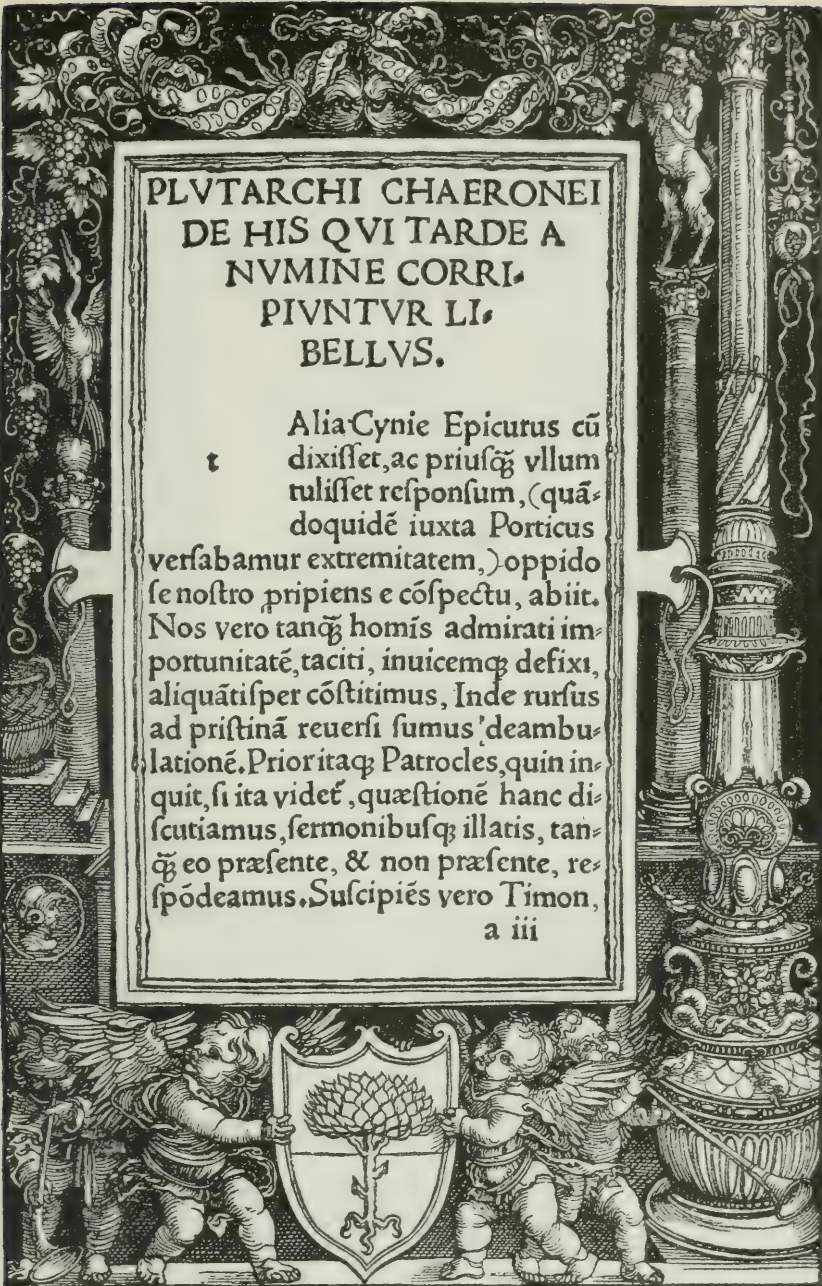 PLVTARCHI CHAERONEI
DE HIS QVI TARDE A
NVMINE CORRI⸗
PIVNTVR LI⸗
BELLVS.
t
Alia Cynie Epicurus cū
dixiſſet, ac priuſq̃ʒ vllum
tuliſſet reſponſum, (quā⸗
doquidē iuxta Porticus
verſabamur extremitatem,) oppido
ſe noſtro ꝓripiens e cōſpectu, abiit.
Nos vero tanq̃ʒ homīs admirati im⸗
portunitatē, taciti, inuicemqʒ defixi,
aliquātiſper cōſtitimus, Inde rurſus
ad priſtinā reuerſi ſumus 'deambu⸗
lationē. Prior itaqʒ Patrocles, quin in⸗
quit, ſi ita videt᷑, quæſtionē hanc di⸗
ſcutiamus, ſermonibuſqʒ illatis, tan⸗
q̃ʒ eo præſente, & non præſente, re⸗
ſpōdeamus. Suſcipiēs vero Timon,
a iii